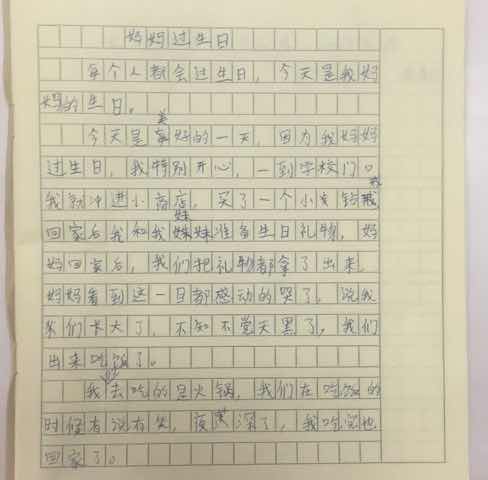 妈妈过生日
每个人都会过生日，今天是我妈
妈的生日。
今天是美好的一天，因为我妈妈
过生日，我特别开心，一到学校门口
我就冲进小商店，买了一个小
回家后我和我妹妹准备生日礼物，妈
妈回家后，我们把礼物都拿了出来，
妈妈看到这一目都感动的哭了，说我
们长大了，不知不觉天黑了，我们
出来吃饭了。
我们去吃的是火锅，我们在吃饭的
时候有说有笑，夜深了，我吃完也
回家了。